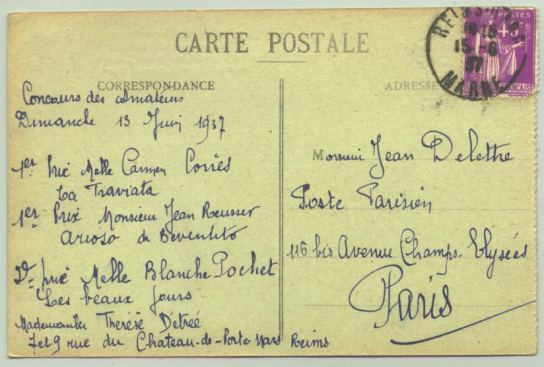 CARTE POSTALE
CORRESPONDANCE
ADRESSE
Concours des Amateurs
Dimanche 13 Juin 1937
1er Prix Melle Carmen Corrès
La Traviata
1er Prix Monsieur Jean
Arioso de
2e prix Melle Blanche Pochet
Les beaux jours
Mademoiselle Thérèse Détrée
7 et 9 rue du Chateau-de-Porte-Mars Reims
Monsieur Jean Delettre
Poste Parisien
116 bis Avenue Champs-Elysées
Paris
REIMS
15-6
37
MARNE
POSTES